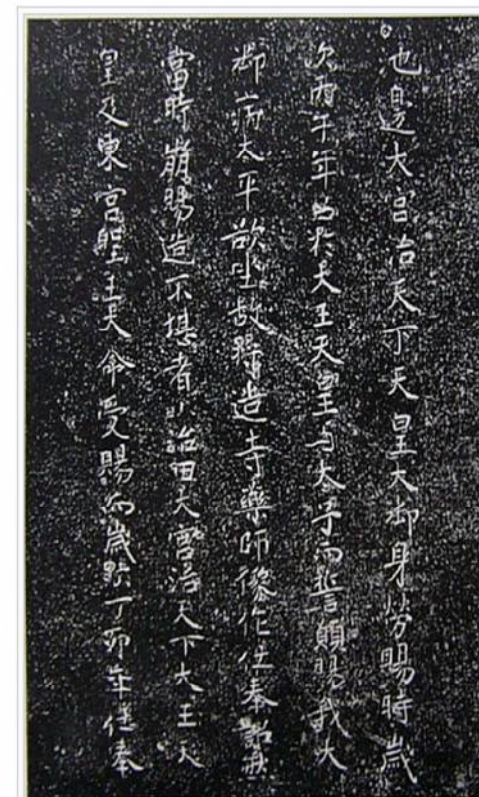 池邊大宮治天下天皇大御身勞賜時歳
次丙午年召於大王天皇与太子而誓願賜我大
御病太平欲坐故将造寺藥師像作仕奉詔然
當時崩賜造不堪者小治田大宮治天下大王天
皇及東宮聖王大命受賜而歳次丁卯年仕奉